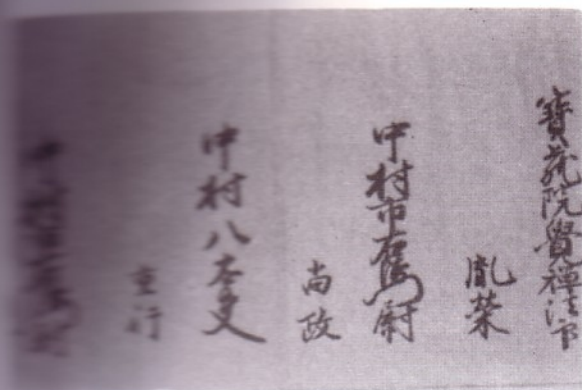 寶蔵院覺禪法印
胤栄
中村市右衛門尉
尚政
中村八太夫
重行
中村